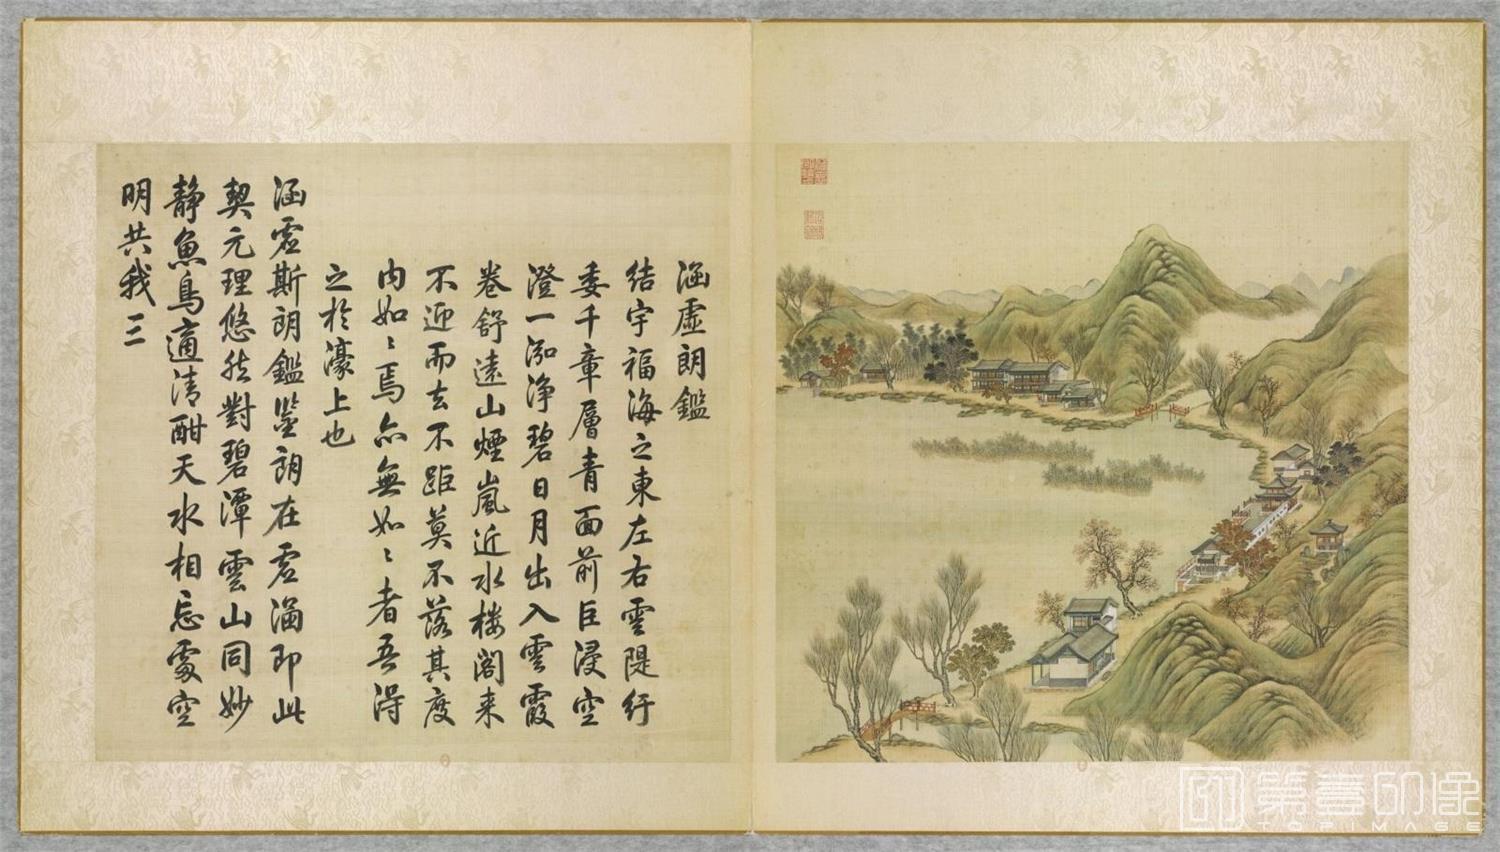 涵虛朗鑑
結宇福海之東左右雲隄紆
委千章層青面前巨浸空
澄一泓淨碧日月出入雲霞
卷舒遠山煙嵐近水樓閣来
不迎而去不距莫不落其度
内如〻焉亦無如〻者吾得
之於濠上也
涵虛斯朗鑑鑒朗在虛涵即此
契元理悠然對碧潭雲山同妙
静魚鳥適清酣天水相忘處空
明共我三
第壹印像
TOPIMAGE